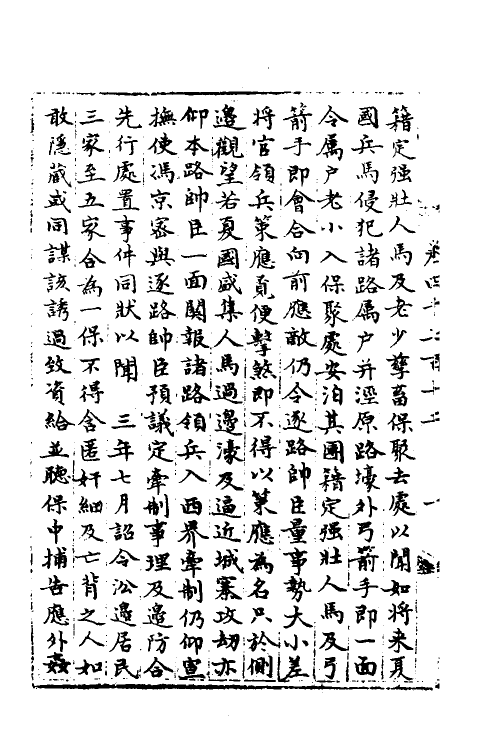 卷四十二百十二
籍定強壯人馬及老少孳畜保聚去處以聞如將來夏
國兵馬侵犯諸路屬户并涇原路壕外弓箭手即一面
令屬户老小入保聚處安泊其團籍定强壯人馬及弓
箭手即會合向前應敵仍令逐路帥臣量事勢大小差
將官領兵策應覓便擊煞即不得以策應為名只於側
邊觀望若夏國盛集人馬過邊濠及逼近城寨攻刼亦
仰本路帥臣一面関報諸路領兵入西界牽制仍仰宣
撫使馮京密與逐路帥臣預議定牽制事理及邊防合
先行處置事件同狀以聞 三年七月詔令沿邊居民
三家至五家合為一保不得舍匿奸細及亡背之人如
敢隱藏或同謀該誘過致資給並聽保中捕告應外姦